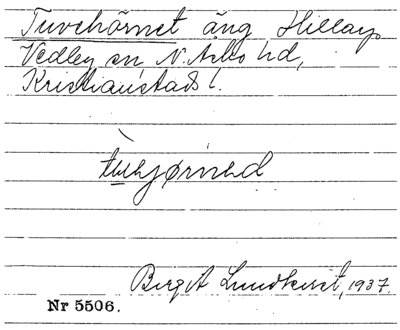 Tuvehörnet äng Hillarp,
Vedby sn N. Åsbo hd,
Kristianstads l.
Birgit Lundkvist, 1937.
Nr 5506.